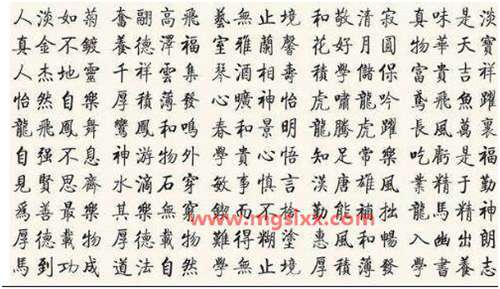 人淡如菊 奮翮高飛 藝無止境 和敬清寂 真味是淡
真金不鍍 養德澤福 室雅蘭馨 花好月圓 物華天寶
人杰地靈 千祥雲集 琴酒相壽 積學儲保 富貴吉祥
怡然自樂 厚積薄發 心曠神怡 虎嘯龍吟 鳶飛魚躍
龍飛鳳舞 鸞鳳和鳴 春和景明 龍騰虎躍 長風萬裏
自強不息 神游物外 學貴心悟 知足常樂 吃虧是福
見賢思齊 水滴石穿 敏事慎言 漢唐雄風 業精于勤
爲善最樂 其樂無窮 而不 勤能補拙 龍馬精神
厚德載物 厚德載物 難得糊塗 惠風和暢 入幽出朗
馬到功成 道法自然 學無止境 厚積薄發 學書養志
www.mgslxx.com